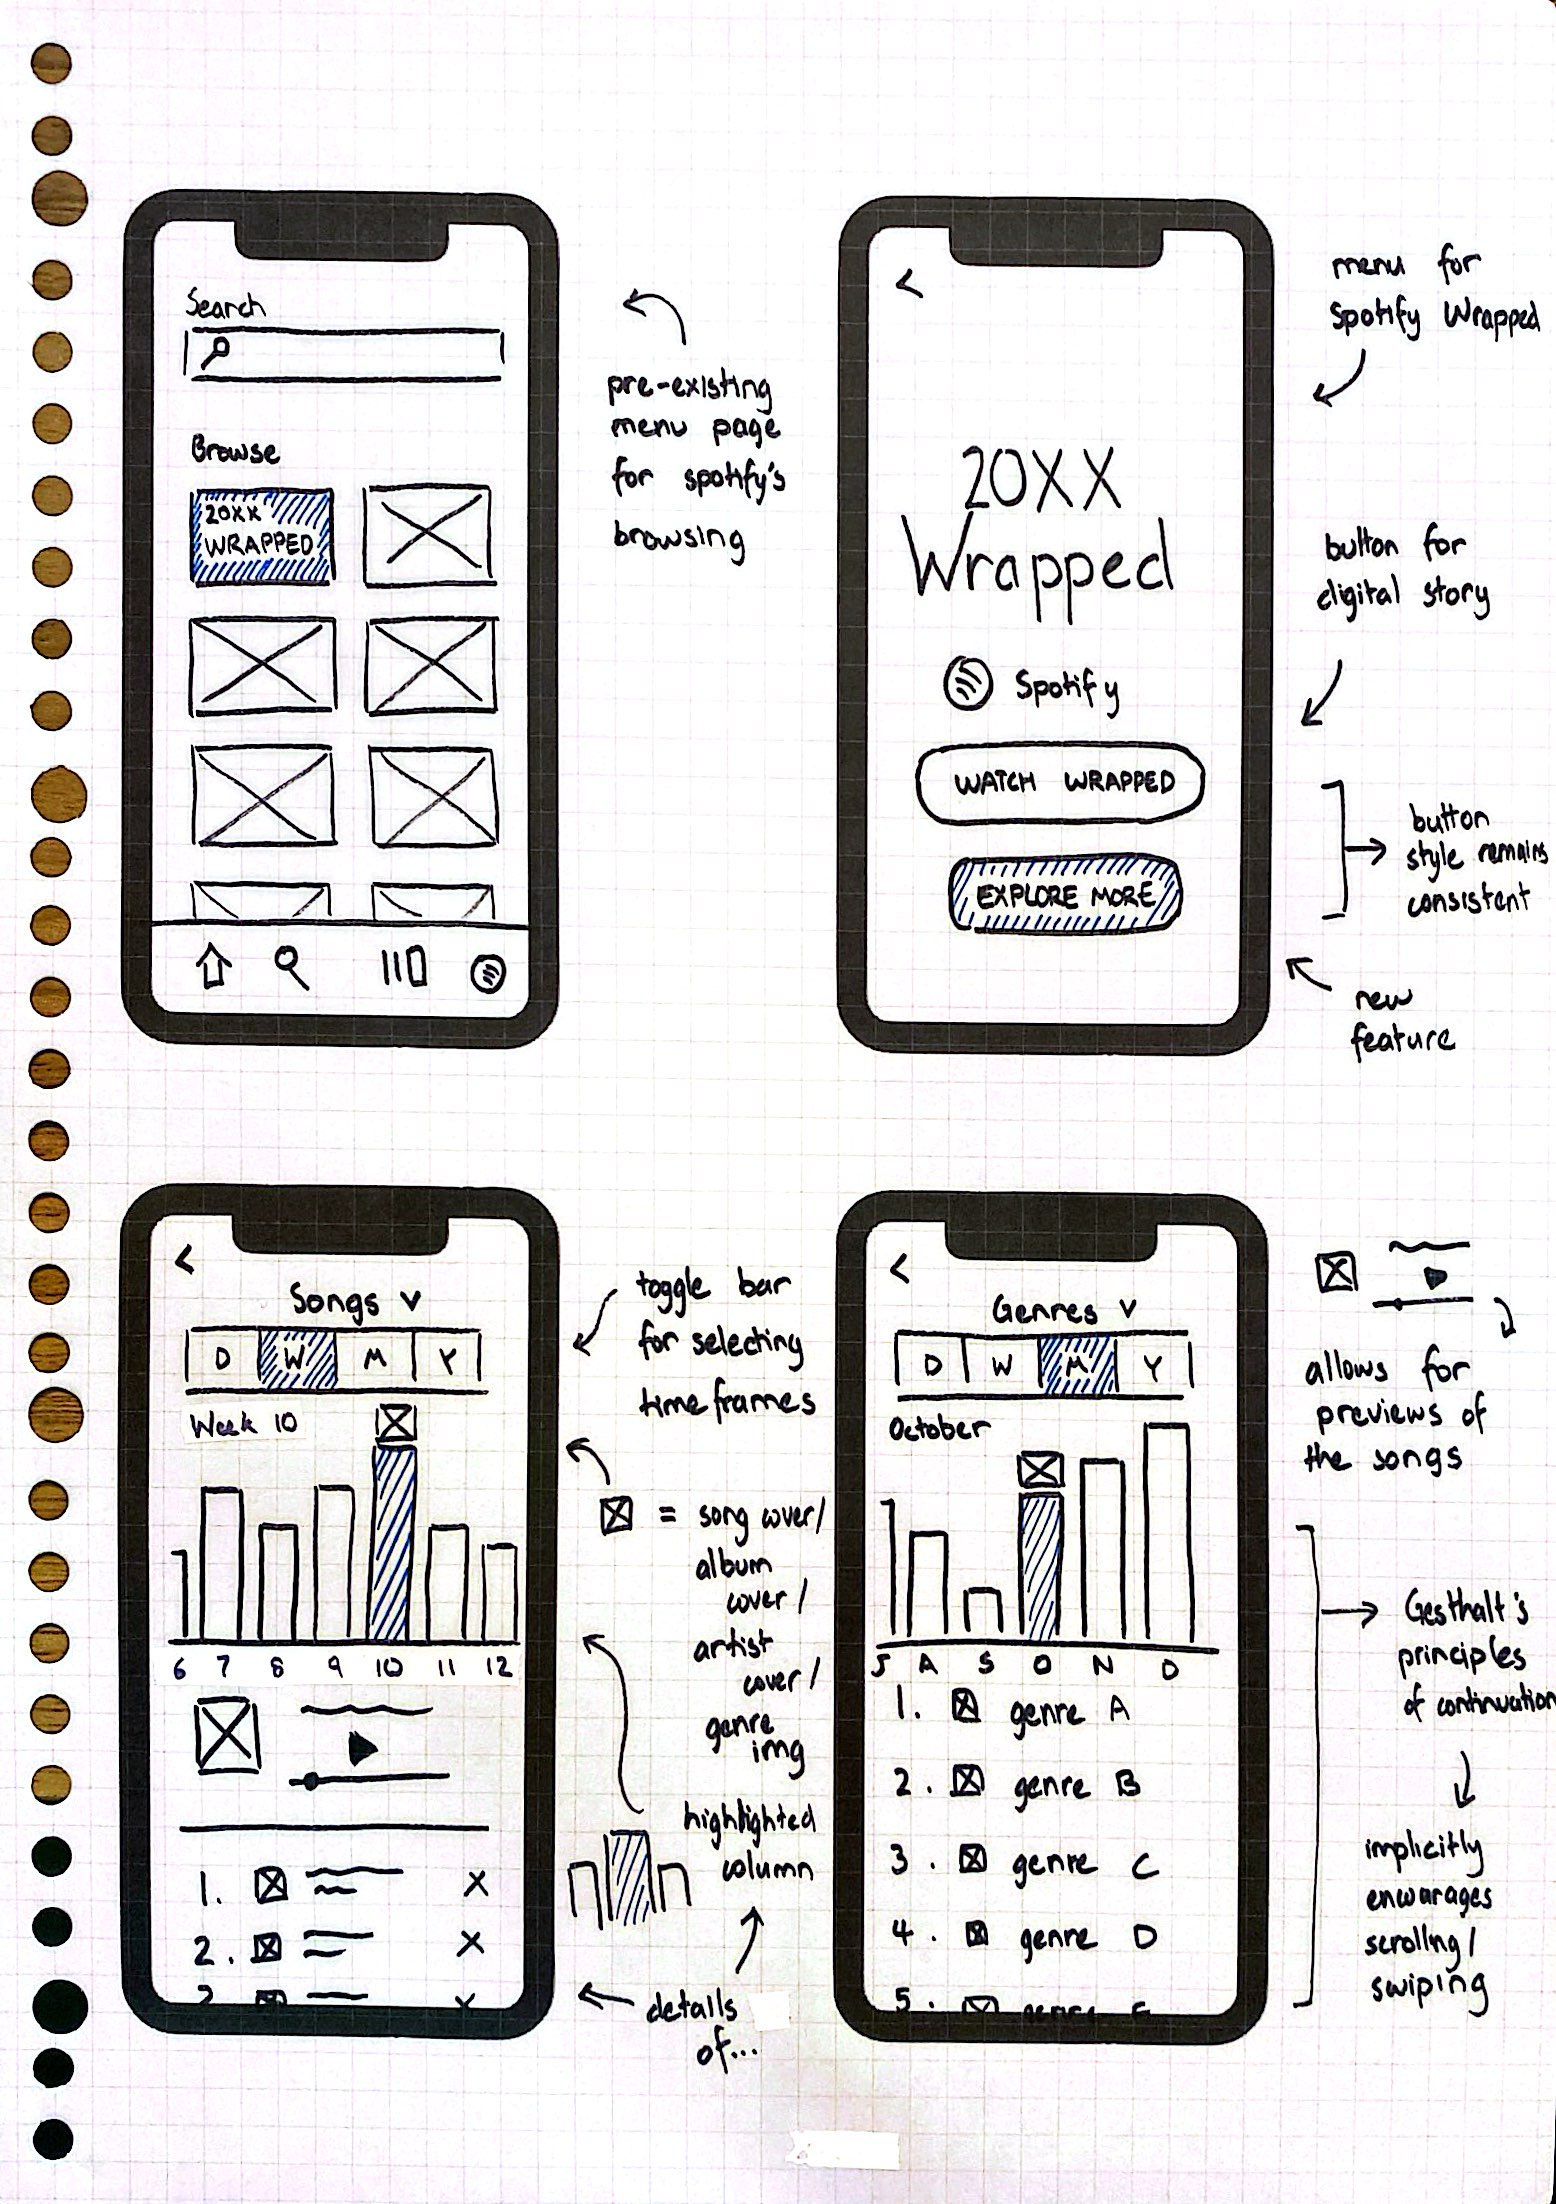 Search
Browse
20XX
WRAPPED
pre-existing
menu page
for spotify's
browsing
<
20XX
Wrapped
Spotify
WATCH WRAPPED
EXPLORE MORE
menu for
Spotify Wrapped
button for
digital story
button
style remains
consistent
new
feature
<
Songs v
D W M Y
Week 10
6 7 8 9 10 11 12
1. X
2. X
3 X
toggle bar
for selecting
time frames
= song cover/
album
cover/
artist
cover/
genre
img
highlighted
column
details
of...
<
Genres v
D W M Y
October
J A S O N D
1. genre A
2. genre B
3. genre C
4. genre D
5. genre E
allows for
previews of
the songs
Gesthalt's
principles
of continuation
implicitly
encourages
scrolling/
swiping